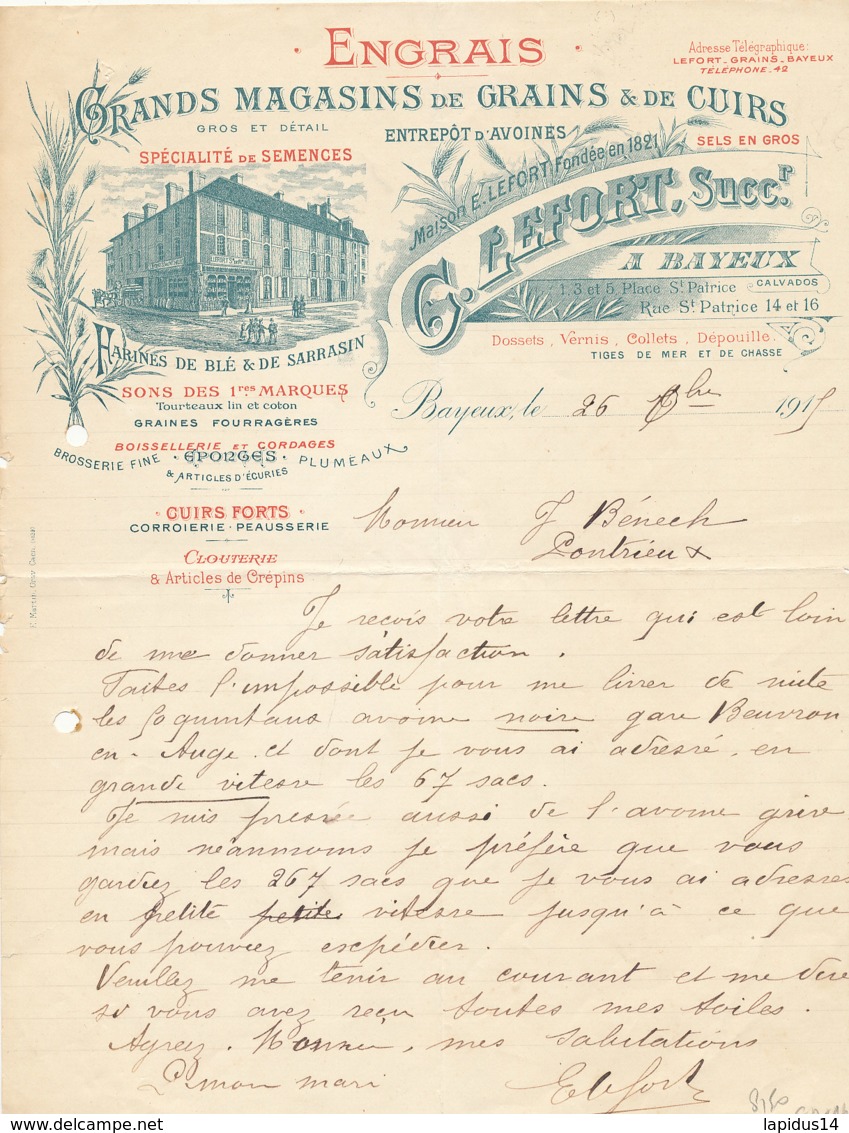 ENGRAIS
Adresse Télégraphique:
LEFORT_GRAINS_BAYEUX
TÉLÉPHONE_42
GRANDS MAGASINS DE GRAINS & DE CUIRS
GROS ET DÉTAIL
ENTREPÔT D'AVOINES
SELS EN GROS
SPÉCIALITÉ DE SEMENCES
Maison E. LEFORT Fondée en 1821
G. LEFORT, Succ.r
A BAYEUX
CALVADOS
1, 3 et 5 Place St Patrice
Rue St Patrice 14 et 16
FARINES DE BLÉ & DE SARRASIN
Dossets, Vernis, Collets, Dépouille.
TIGES DE MER ET DE CHASSE
SONS DES 1res MARQUES
Tourteaux lin et coton
GRAINES FOURRAGÈRES
BOISSELLERIE ET CORDAGES
BROSSERIE FINE · EPONGES · PLUMEAUX
& ARTICLES D'ÉCURIES
CUIRS FORTS
CORROIERIE · PEAUSSERIE
CLOUTERIE
& Articles de Crépins
Bayeux, le 26 8bre 1915
Monsieur J Bénech
Pontrieux
Je reçois votre lettre qui est loin
de me donner satisfaction.
Faites l'impossible pour me livrer de suite
les 50 quintaux avoine noire gare Beuvron
en-Auge et dont je vous ai adressé, en
grande vitesse les 67 sacs.
Je suis pressée aussi de l'avoine grise
mais néanmoins je préfère que vous
gardiez les 267 sacs que je vous ai adressés
en petite petite vitesse jusqu'à ce que
vous pouviez expédier.
Veuillez me tenir au courant et me dire
si vous avez reçu toutes mes toiles.
Agréez, Monsieur, mes salutations
P. mon mari
E Lefort
8,50
lapidus14